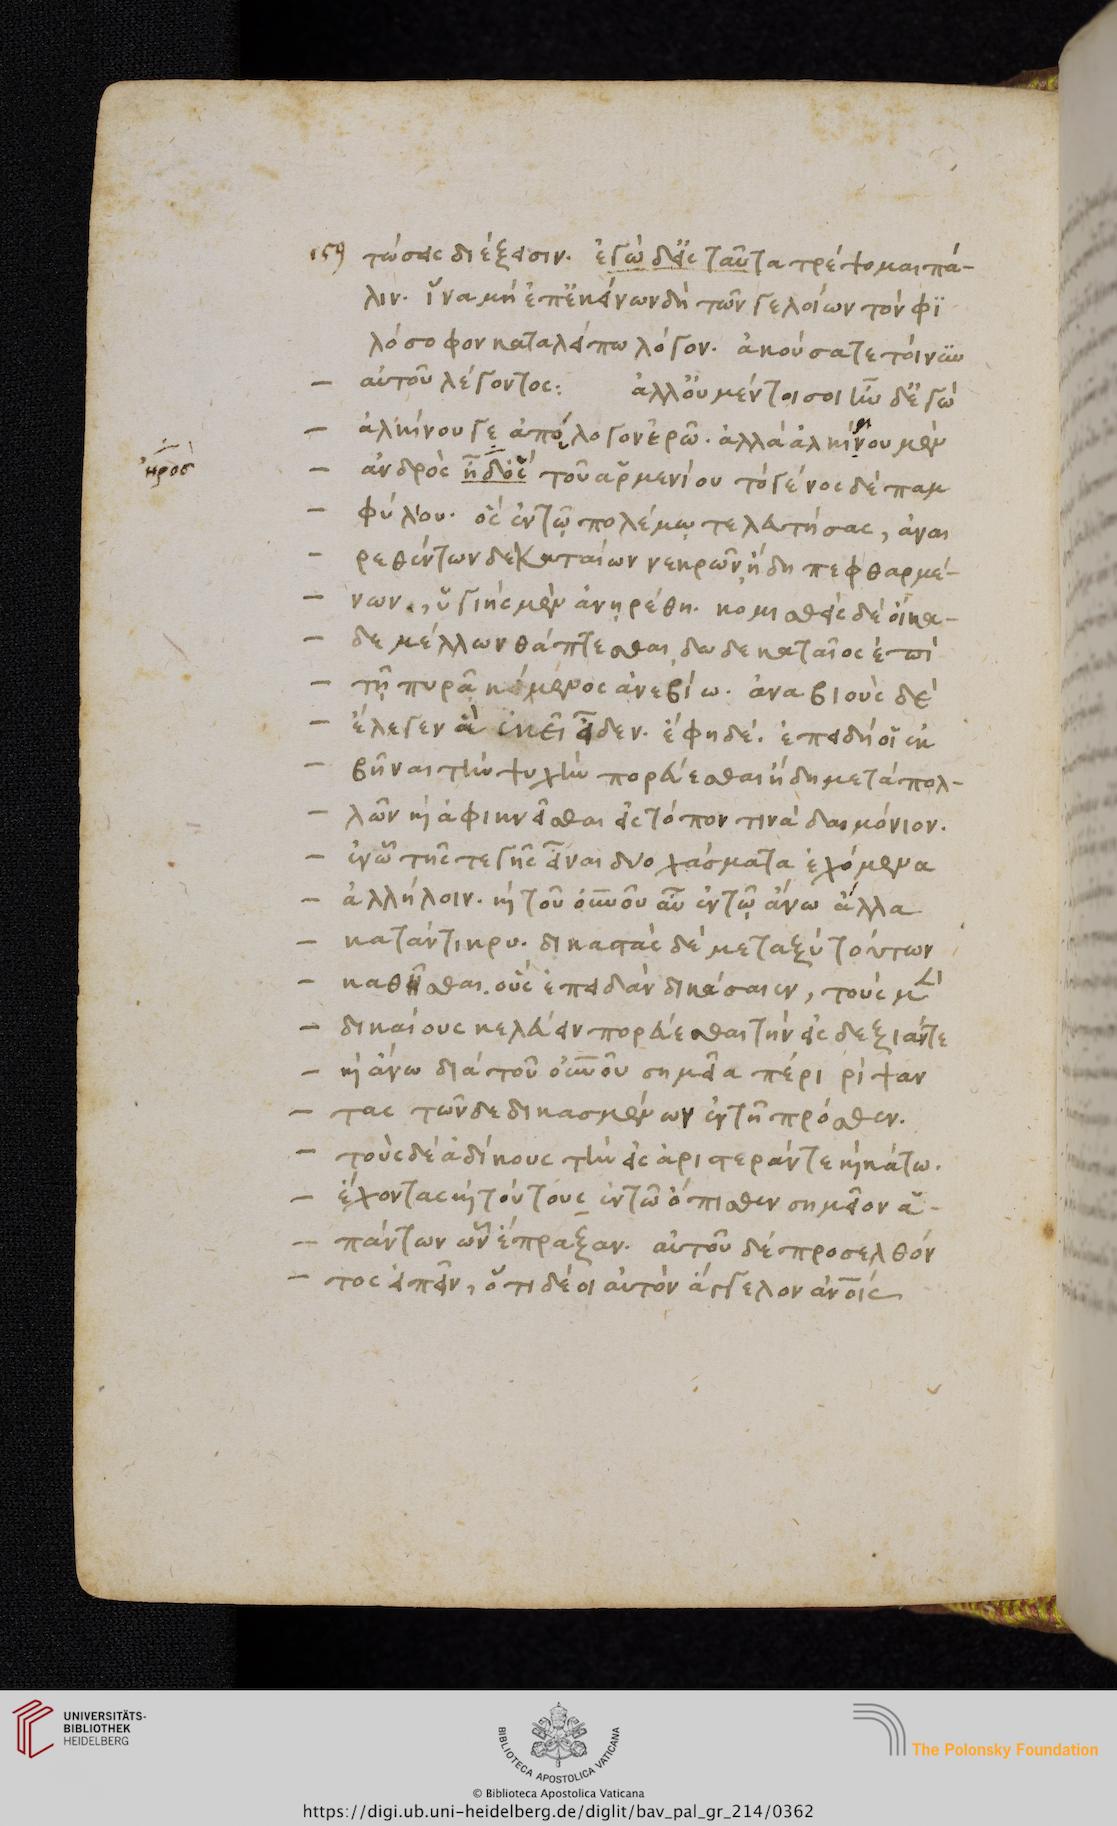 159 τώσας διέξεισιν. ἐγὼ δ' εἰς ταῦτα τρέψομαι πά-
λιν. ἵνα μὴ ἐπ' ἐκείνων δὴ τῶν γελοίων τὸν φι
λόσοφον καταλείπω λόγον. ἀκούσατε τοίνυν
αὐτοῦ λέγοντος: ἀλλ' οὐ μέν τοι σοι ἦν δ' ἐγὼ
ἀλκίνου γε ἀπόλογον ἐρῶ. ἀλλὰ ἀλκίμου μὲν
ἀνδρὸς
ἠρὸσ
τοῦ ἀρμενίου τὸ γένος δὲ παμ
φύλου. ὅς ἐν τῷ πολέμῳ τελευτήσας, ἀναι
ρεθέντων δεκαταίων νεκρῶν ἤδη πεφθαρμέ-
νων, ὑγιὴς μὲν ἀνῃρέθη. κομισθεὶς δὲ οἴκα-
δε μέλλων θάπτεσθαι, δωδεκαταῖος ἐπὶ
τῇ πυρᾷ κείμενος ἀνεβίω. ἀναβιοὺς δὲ
ἔλεγεν ἃ ἐκεῖ εἶδεν. ἔφη δέ. ἐπειδὴ οἷ ἐκ
βῆναι τὴν ψυχὴν πορεύεσθαι ἤδη μετὰ πολ-
λῶν καὶ ἀφικνεῖσθαι εἰς τόπον τινὰ δαιμόνιον.
ἐν ᾧ τῆς τε γῆς εἶναι δυο χάσματα ἐχόμενα
ἀλλήλοιν. καὶ τοῦ οὐνοῦ αὖ ἐν τῷ ἄνω ἄλλα
καταντικρυ. δικαστὰς δὲ μεταξὺ τούτων
καθῆσθαι. οὓς ἐπειδὰν δικάσαιεν, τοὺς μὲν
δικαίους κελεύειν πορεύεσθαι τὴν εἰς δεξιάν τε
καὶ ἄνω διὰ τοῦ οὐνοῦ σημεῖα πέρι ρίψαν
τας τῶν δεδικασμένων ἐν τῇ πρόσθεν.
τοὺς δὲ ἀδίκους τὴν εἰς ἀριστεράν τε καὶ κάτω.
ἔχοντας καὶ τούτους ἐν τῷ ὄπισθεν σημεῖον ἁ-
πάντων ὧν ἔπραξαν. αὐτοῦ δὲ προσελθόν
τος εἰπεῖν, ὅτι δέοι αὐτὸν ἄγγελον ἀνοις
UNIVERSITÄTS-
BIBLIOTHEK
HEIDELBERG
BIBLIOTECA APOSTOLICA VATICANA
The Polonsky Foundation
© Biblioteca Apostolica Vaticana
https://digi.ub.uni-heidelberg.de/diglit/bav_pal_gr_214/0362